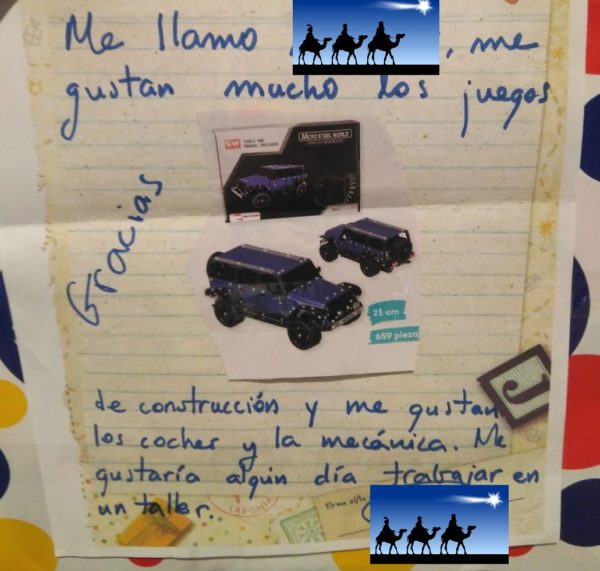 Me llamo , me
gustan mucho los juegos
Gracias
BW
TOOLS AND
MANUAL INCLUDED
MICRO STEEL WORLD
21 cm
659 pieza
de construcción y me gustan
los coches y la mecánica. Me
gustaría algún día trabajar en
un taller.
LAPONIA
Firma el/la
J